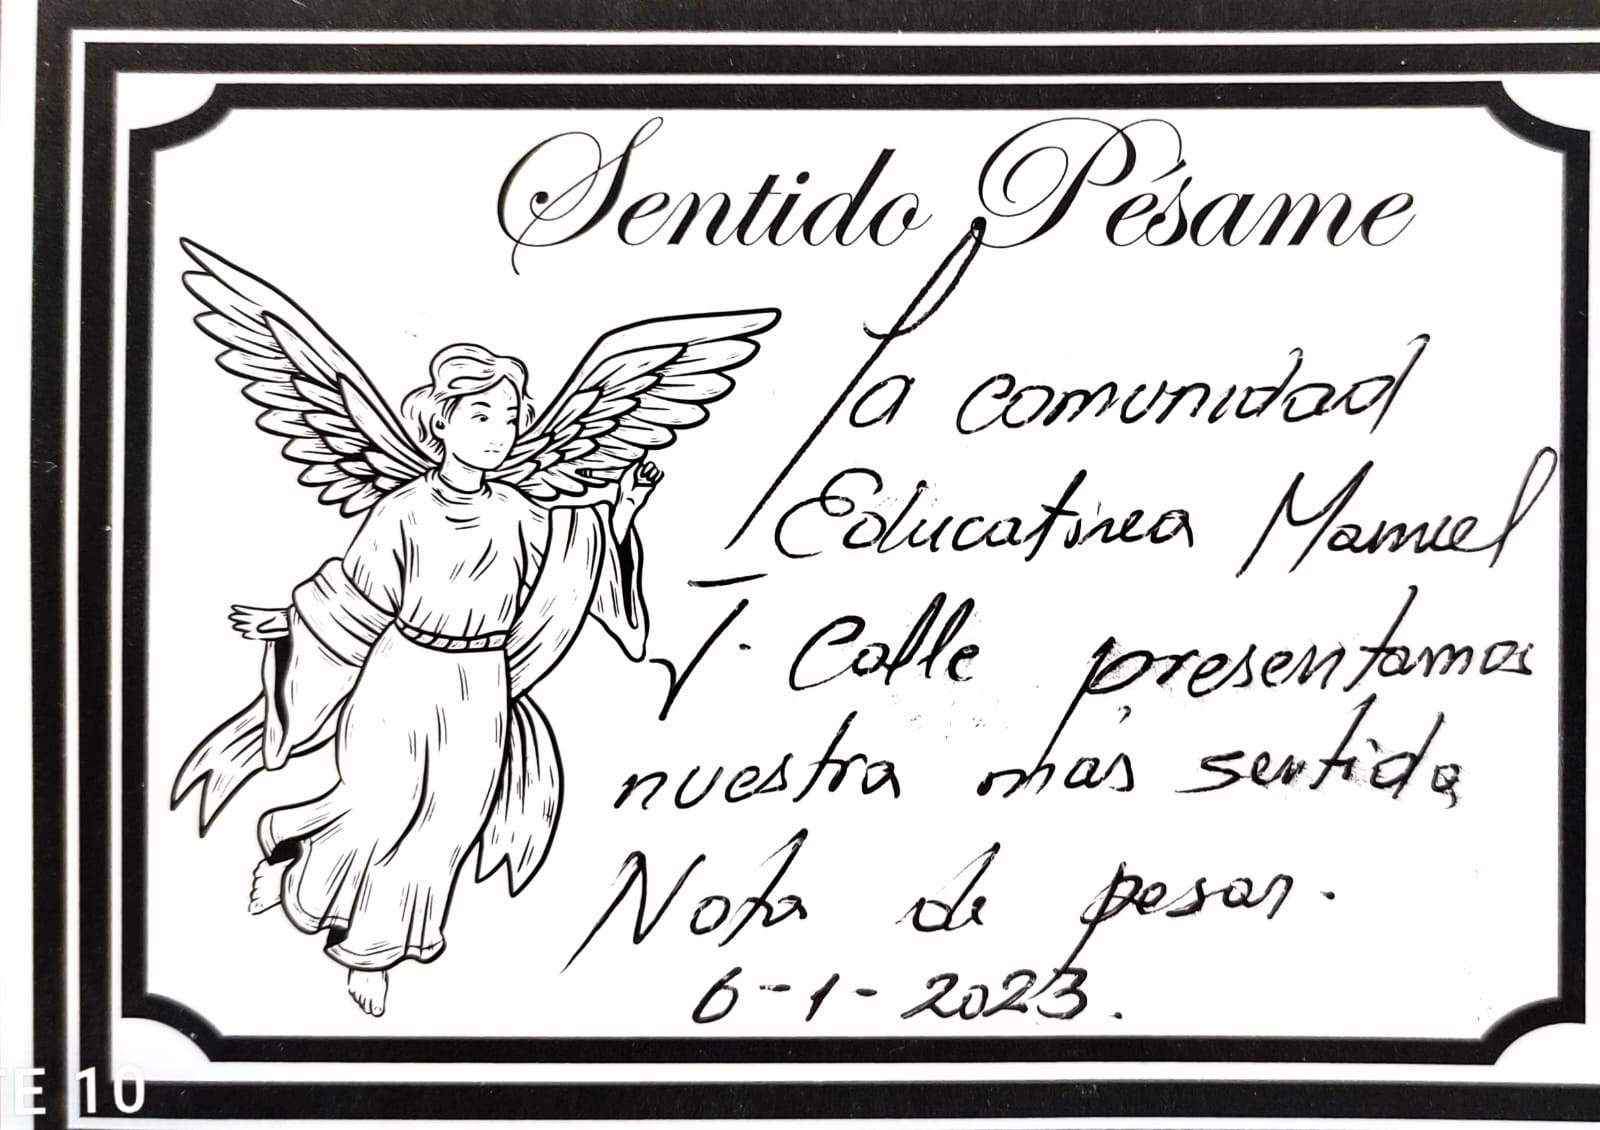 Sentido Pésame
La comunidad
Educativa Manuel
J. Calle presentamos
nuestra más sentida
Nota de pesar.
6-1-2023.
TE 10